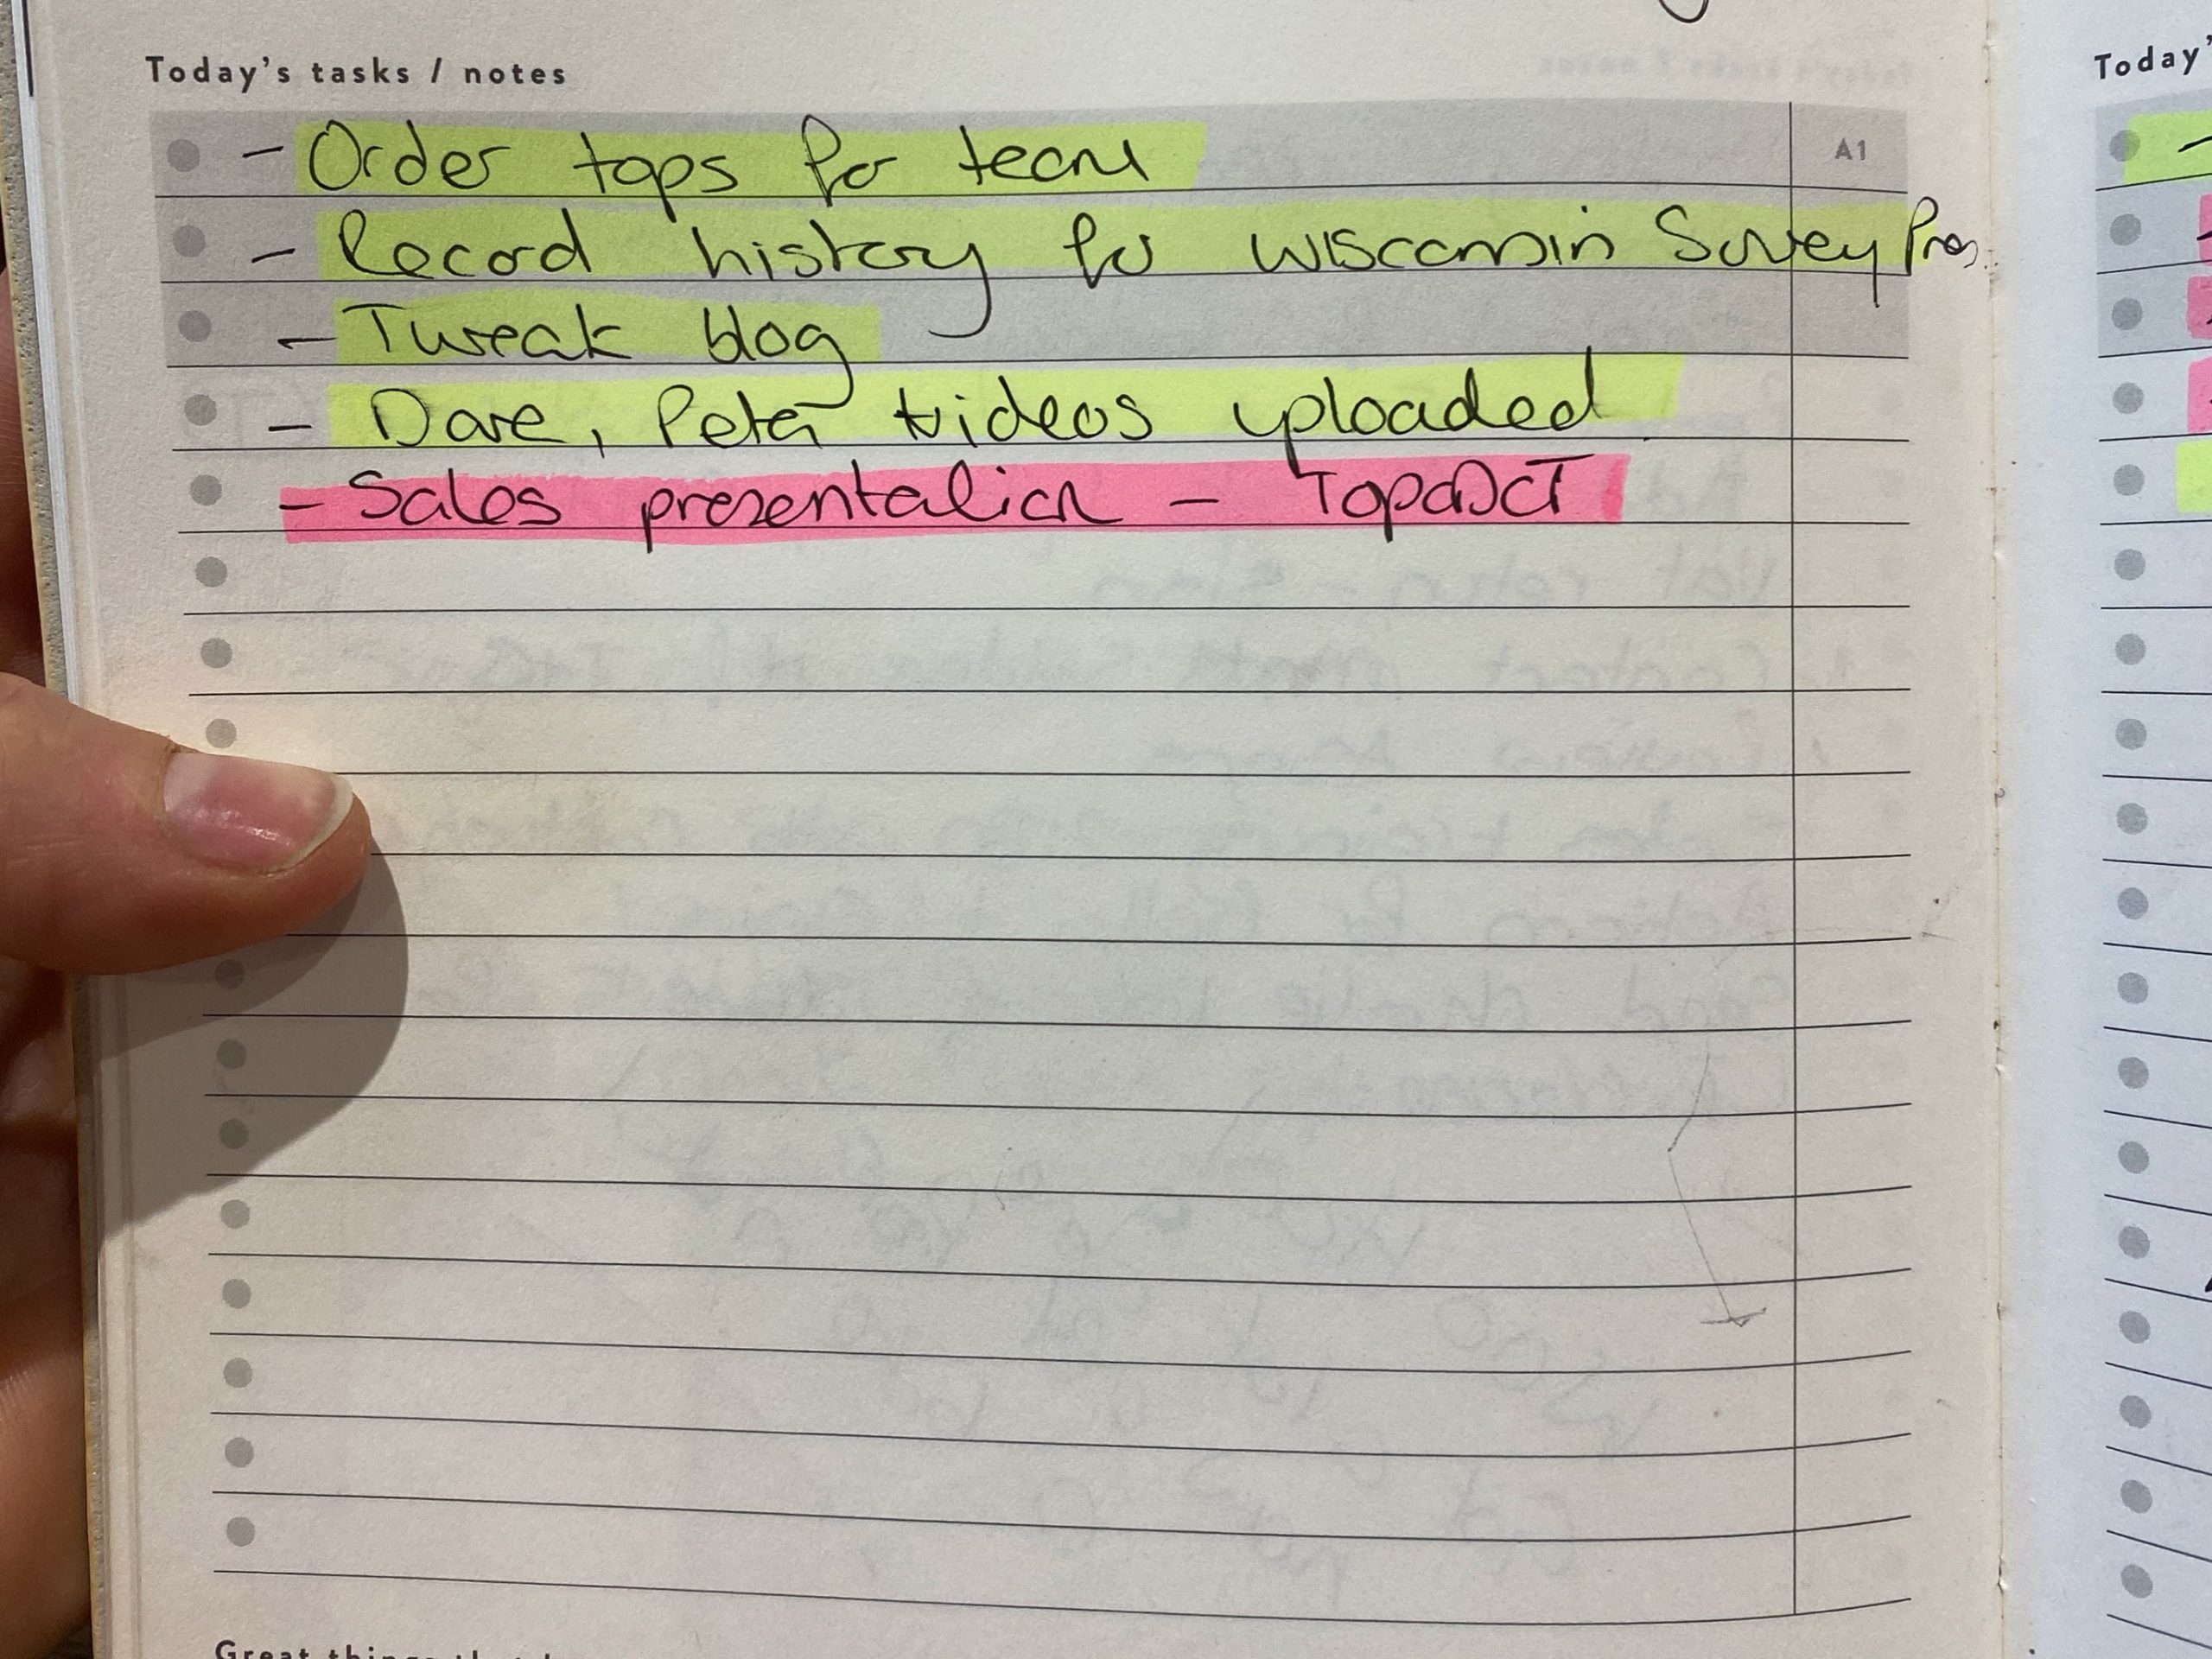 Today's tasks / notes
- Order tops for team A1
- Record history for Wisconsin Survey Pres.
- Tweak blog
- Dave, Peter videos uploaded
- Sales presentation -
Today'